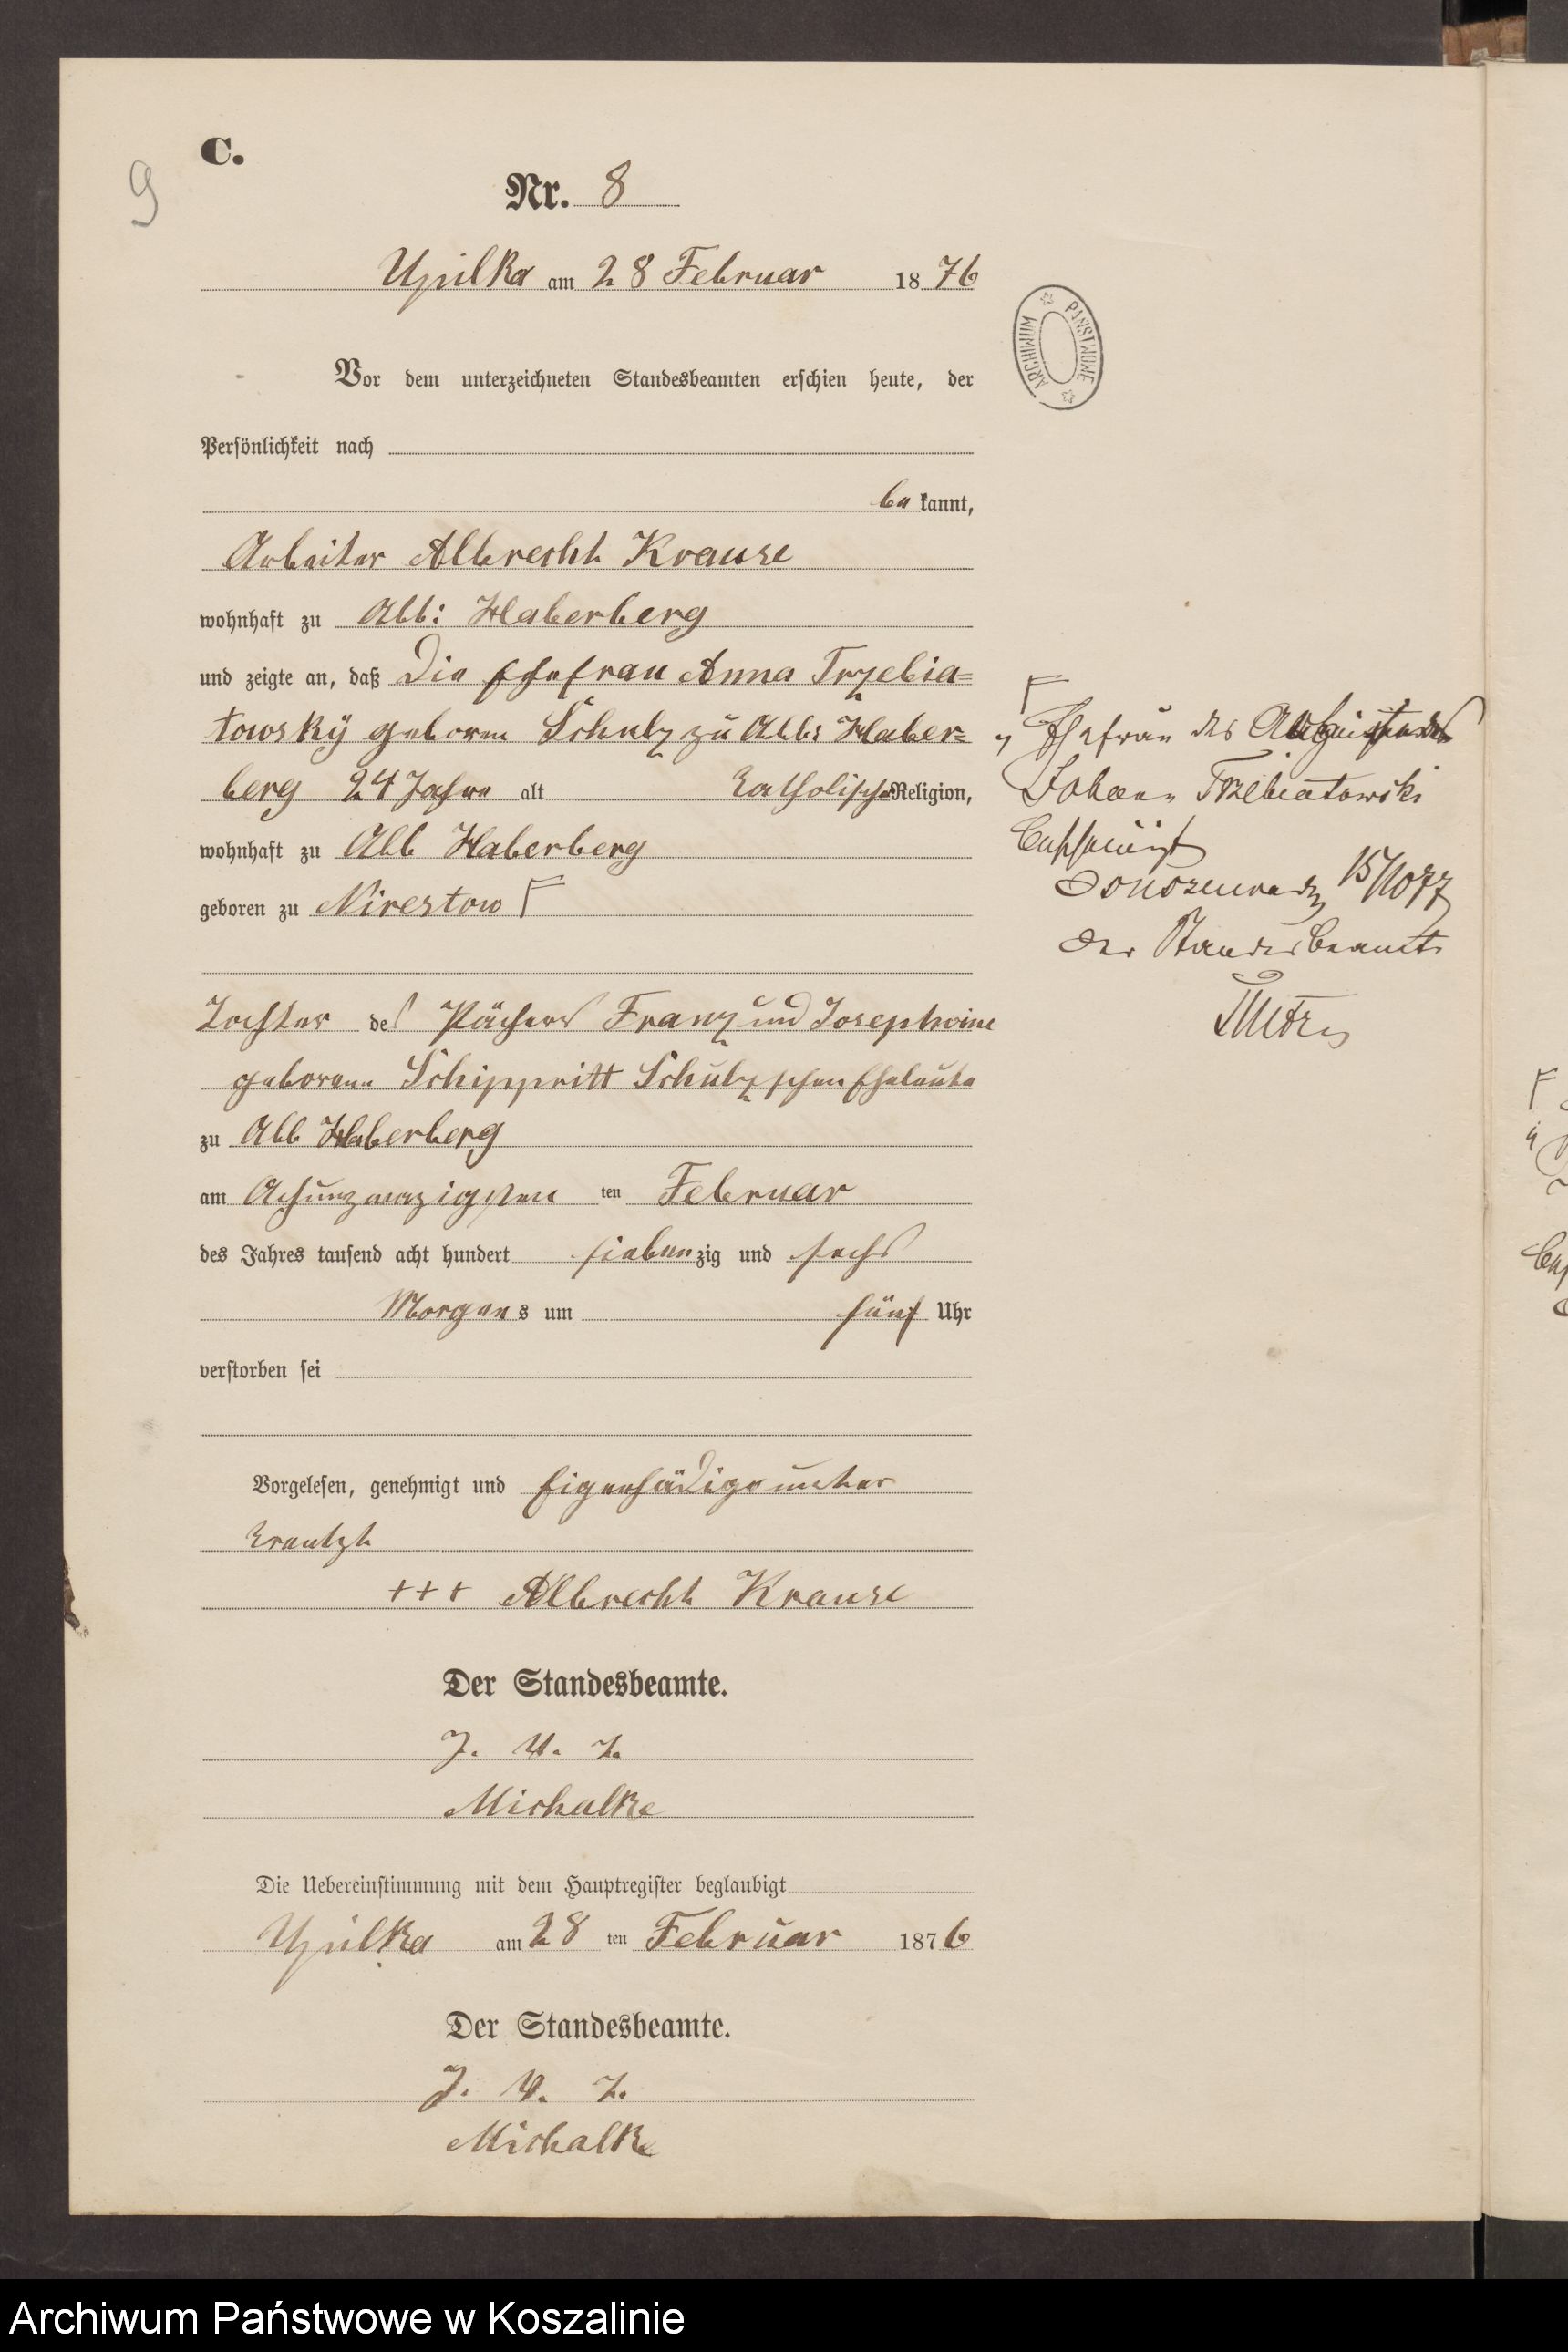 C.
9
Nr. 8
Upilka am 28 Februar 1876
ARCHIWUM PAŃSTWOWE
Vor dem unterzeichneten Standesbeamten erschien heute, der
Persönlichkeit nach
be kannt,
Arbeiter Albrecht Krause
wohnhaft zu Abb: Haberberg
und zeigte an, daß Die Ehefrau Anna Trzebia=
towsky geboren Schulz zu Abb: Haber=
berg 24 Jahre alt katholischer Religion,
wohnhaft zu Abb Haberberg
geboren zu Nirestow F
Tochter des Pächers Franz und Josephoine
geborenn Schippritt Schulzschen Eheleute
zu Abb Haberberg
am Achunzwazigsten ten Februar
des Jahres tausend acht hundert siebenzig und sechs
Morgens um fünf Uhr
verstorben sei
Vorgelesen, genehmigt und Eigenhädige unter
kreutzt
+++ Albrecht Krause
Der Standesbeamte.
J. V. Z.
Michalke
Die Uebereinstimmung mit dem Hauptregister beglaubigt
Upilka am 28 ten Februar 1876
Der Standesbeamte.
J. V. Z.
Michalke
F
Ehefrau des
Johann Trzebiatowski
15/10 77
Der Standesbeamte
Archiwum Państwowe w Koszalinie